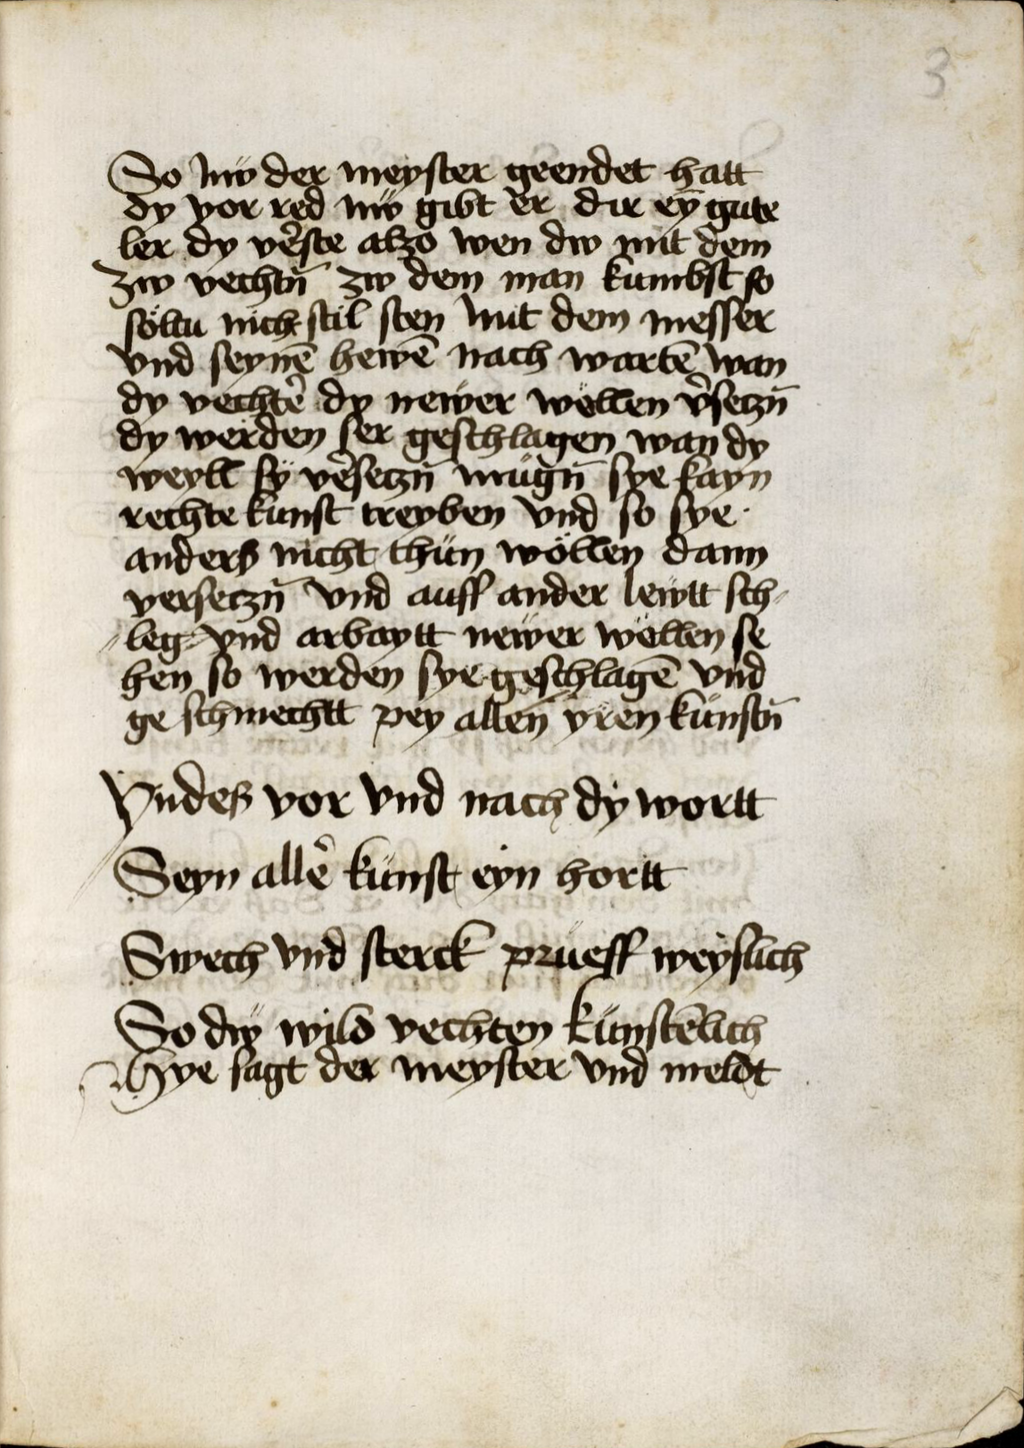 3
So nẅ der meyster geendet hatt
dy vor red nẅ gibt er dir eȳ gute
ler dy v̉ste alzo wen dw mit dem
zw vechtn̄ zw dem man kumbst so
söltu nicht stil sten mit dem messer
vnd seynē hewē nach wartē wan
dy vechtè dy newer wöllen v̉setzn̄
dy werden ser geschlagen wan dy
weyll sÿ vèsetzn̄ mügn̄ sye kayn
rechte kunst treyben vnd so sye
anders nicht thün wöllen dann
versetzn̄ vnd auff ander lewtt sch⸗
⸗leg vnd arbaytt newer wellen se
hen so werden sye geschlagē vnd
ge schmechtt pey allen yren künstn̄
Yndes vor vnd nach dy wortt
Seyn allè künst eyn hortt
Swech vnd sterck prüeff weyslich
So dẅ wild vechten künstēlich
Hye sagt der meyster vnd meldt